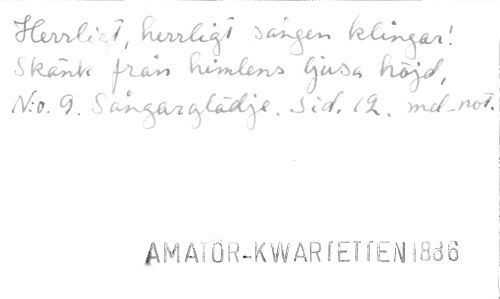 Herrligt, herrligt sången klingar!
Skänk från himlens ljusa höjd,
N:o. 9. Sångarglädje. Sid. 12. md-not.
AMATÖR-KWARTETTEN 1886